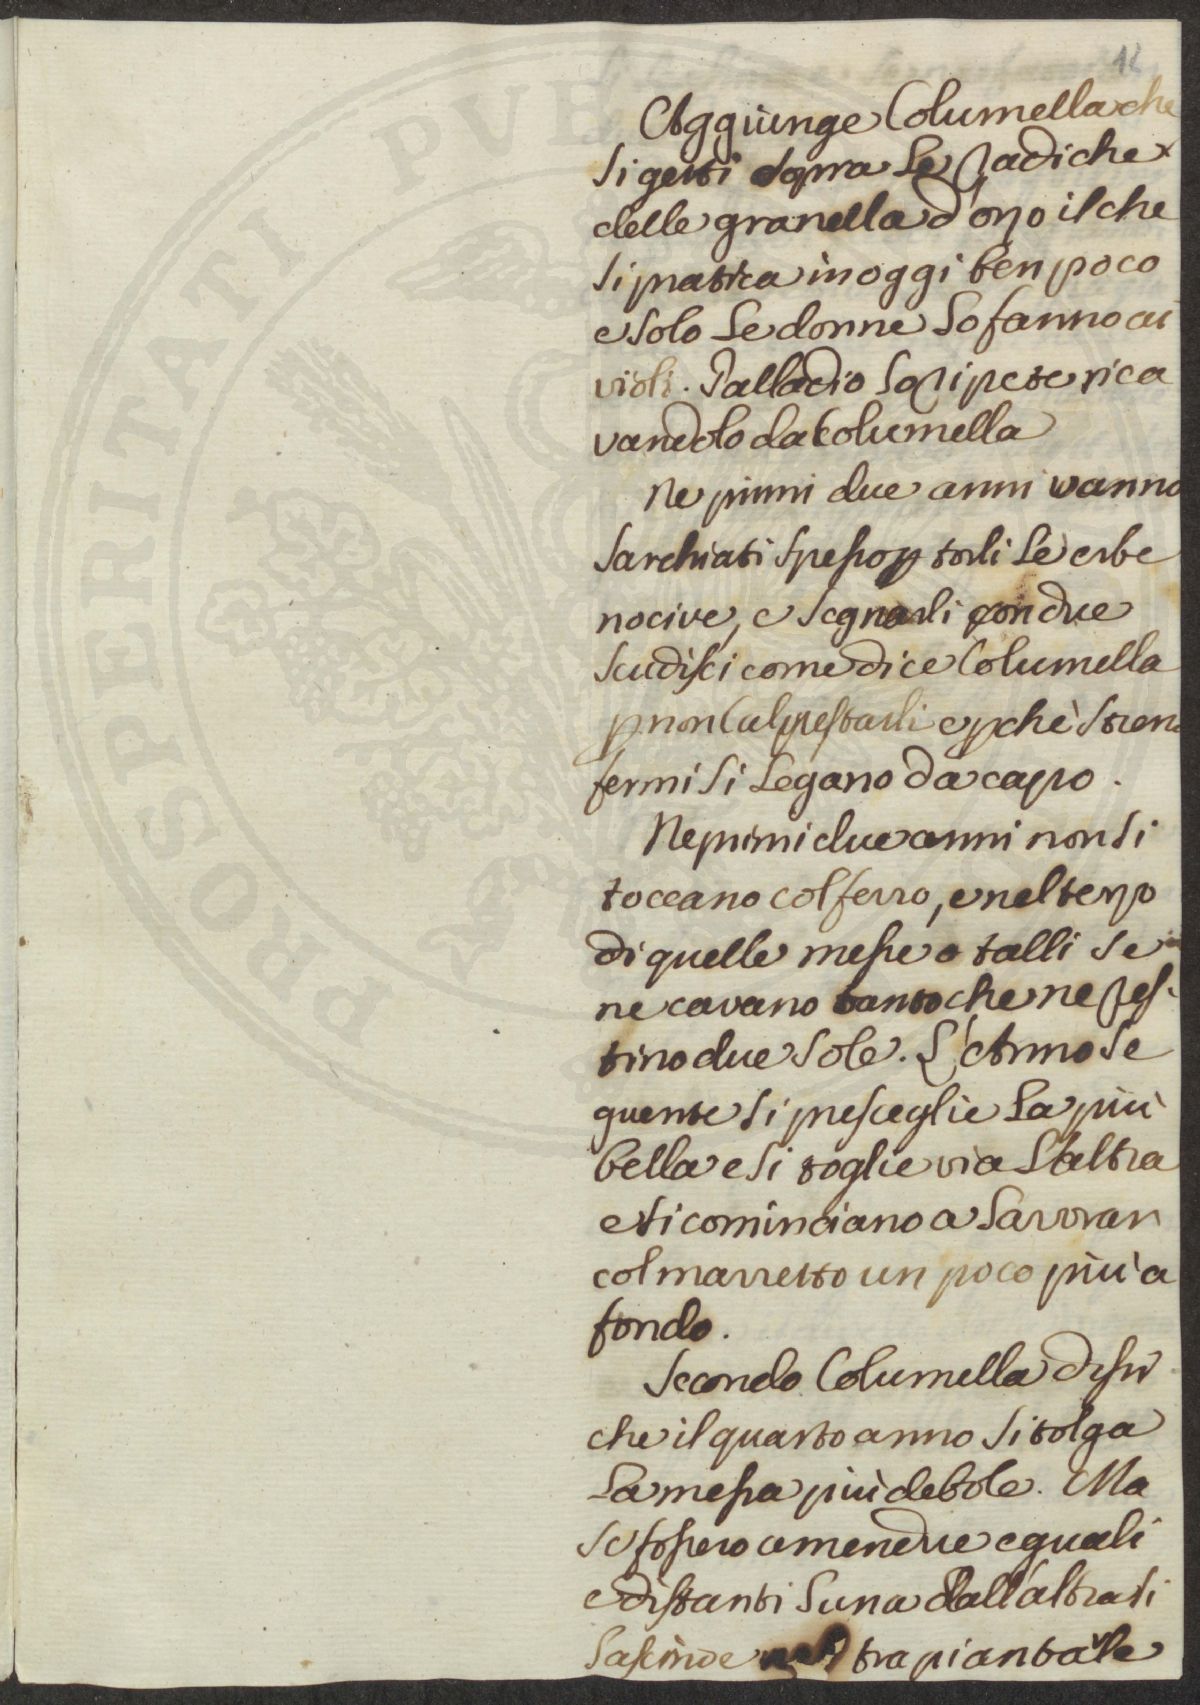 12
Aggiunge Columella che
si getti sopra le Radiche
delle granella d'orzo il che
si pratica in oggi ben poco
e solo le donne lo fanno ai
violi. Palladio lo Ripete rica
vandolo da Columella
Ne primi due anni vanno
sarchiati spesso p torli le erbe
nocive, e segnarli con due
scudisci come dice Columella
p non Calpestarli e pchè stieno
fermi si legano da capo.
Ne primi due anni non si
toccano col ferro, e nel terzo
di quelle messe o talli se
ne cavano tanto che ne Res-
tino due sole. L'Anno se
guente si presceglie la più
bella e si toglie via l'altra
e si cominciano a lavorar
col marretto un poco più a
fondo.
Secondo Columella
che il quarto anno si tolga
la messa più debole. Ma
se fossero amendue eguali
e distanti l'una dall'altra si
trapiantarle
PROSPERITATI PVB